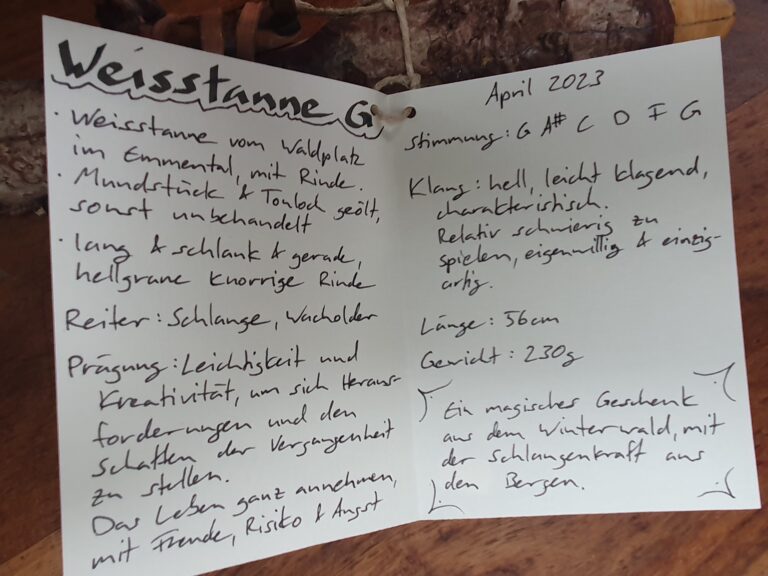 Weisstanne G
· Weisstanne vom Waldplatz
im Emmental, mit Rinde.
· Mundstück & Tonloch geölt,
sonst unbehandelt
· lang & schlank & gerade,
hellgraue knorrige Rinde
Reiter: Schlange, Wacholder
Prägung: Leichtigkeit und
Kreativität, um sich Heraus-
forderungen und den
Schatten der Vergangenheit
zu stellen.
Das Leben ganz annehmen,
mit Freude, Risiko & Angst
April 2023
Stimmung: G A# C D F G
Klang: hell, leicht klagend,
charakteristisch.
Relativ schwierig zu
spielen, eigenwillig & einzig-
artig.
Länge: 56cm
Gewicht: 230g
Ein magisches Geschenk
aus dem Winterwald, mit
der Schlangenkraft aus
den Bergen.